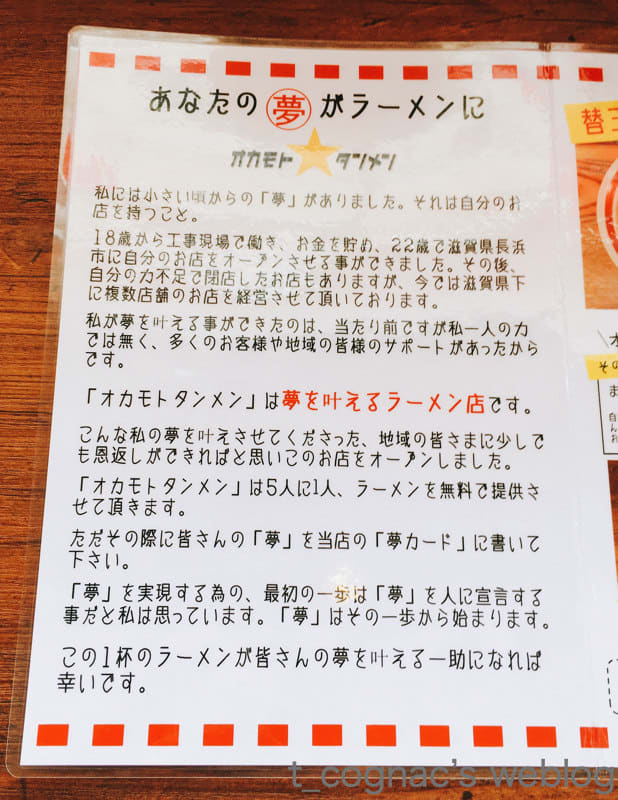 あなたの夢がラーメンに
オカモト★タンメン
私には小さい頃からの「夢」がありました。それは自分のお
店を持つこと。
18歳から工事現場で働き、お金を貯め、22歳で滋賀県長浜
市に自分のお店をオープンさせる事ができました。その後、
自分の力不足で閉店したお店もありますが、今では滋賀県下
に複数店舗のお店を経営させて頂いております。
私が夢を叶える事ができたのは、当たり前ですが私一人の力
では無く、多くのお客様や地域の皆様のサポートがあったから
です。
「オカモトタンメン」は夢を叶えるラーメン店です。
こんな私の夢を叶えさせてくださった、地域の皆さまに少しで
も恩返しができればと思いこのお店をオープンしました。
「オカモトタンメン」は5人に1人、ラーメンを無料で提供さ
せて頂きます。
ただその際に皆さんの「夢」を当店の「夢カード」に書いて
下さい。
「夢」を実現する為の、最初の一歩は「夢」を人に宣言する
事だと私は思っています。「夢」はその一歩から始まります。
この1杯のラーメンが皆さんの夢を叶える一助になれば
幸いです。
替
その
t_cognac's weblog